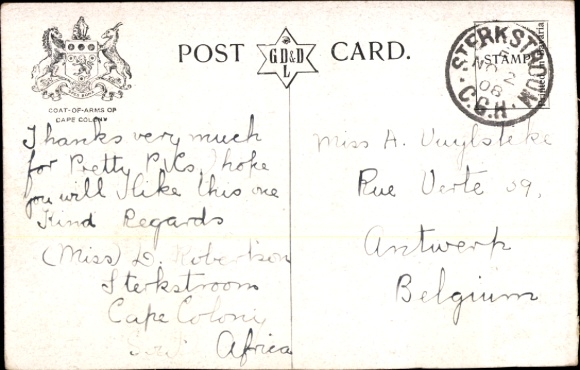 POST CARD.
G.D.&D
L
COAT-OF-ARMS OF
CAPE COLONY
STERKSTROOM
NO 2
08
C.G.H.
STAMP
Bavaria
Thanks very much
for Pretty P.Cs, I hope
you will like this one
Kind Regards
(Miss) D. Robertson
Sterkstroom
Cape Coloni
Africa
Miss A. Vuylsteke
Rue Verte 29,
Antwerp
Belgium